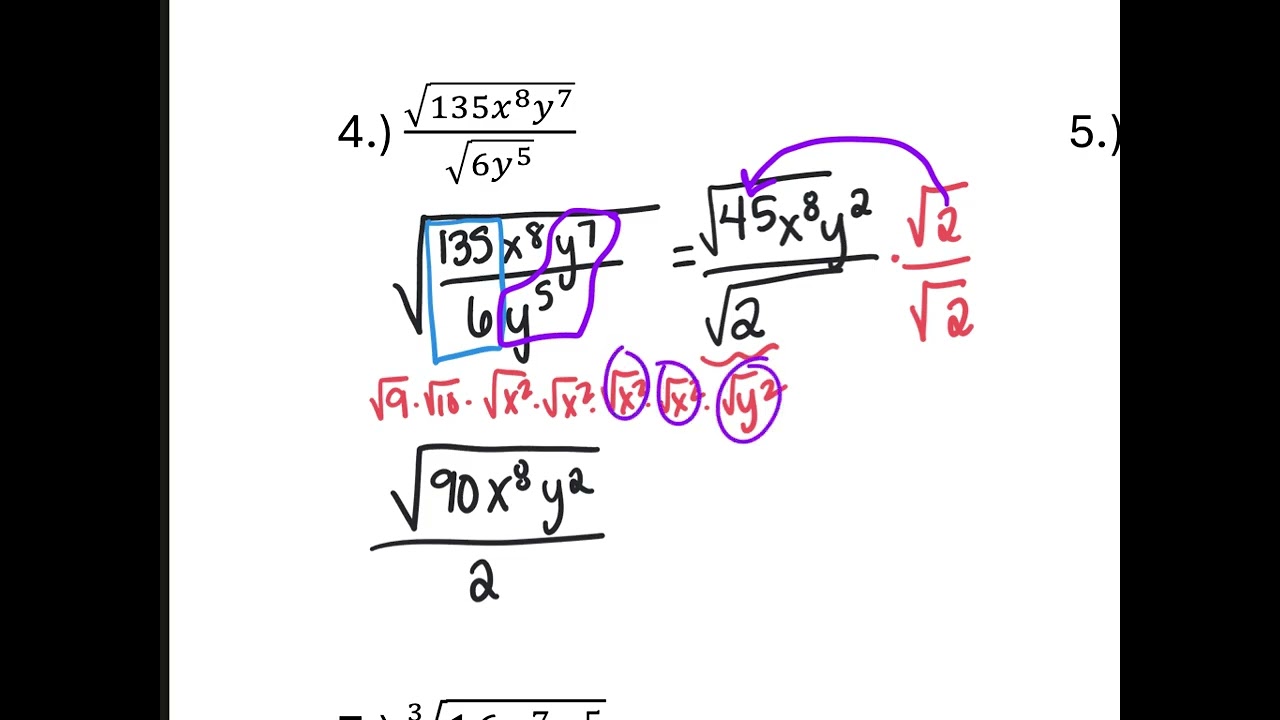 4.) √(135x⁸y⁷) / √(6y⁵)
5.)
√(135x⁸y⁷ / 6y⁵) = √(45x⁸y²) / √2 · √2 / √2
√9 · √10 · √x² · √x² · √x² · √x² · √y²
√(90x⁸y²) / 2